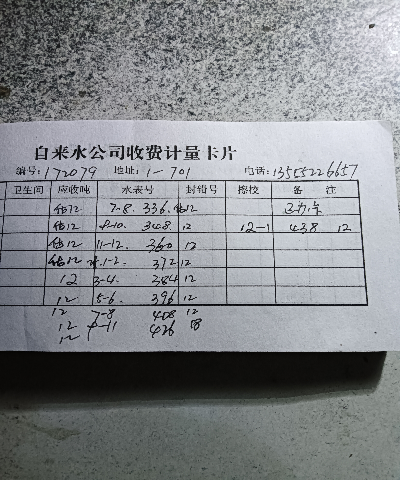 自来水公司收费计量卡片
编号:172079 地址:1-701 电话:13555226657
卫生间 应收吨 水表号 封铅号 擦校 备 注
估12 7-8. 336. 估12
估12 9-10. 348 12 12-1 438 12
估12 11-12. 360 12
估12 1-2. 372 12
12 3-4. 384 12
12 5-6. 396 12
12 7-8 408 12
12 9-11 426 18
12